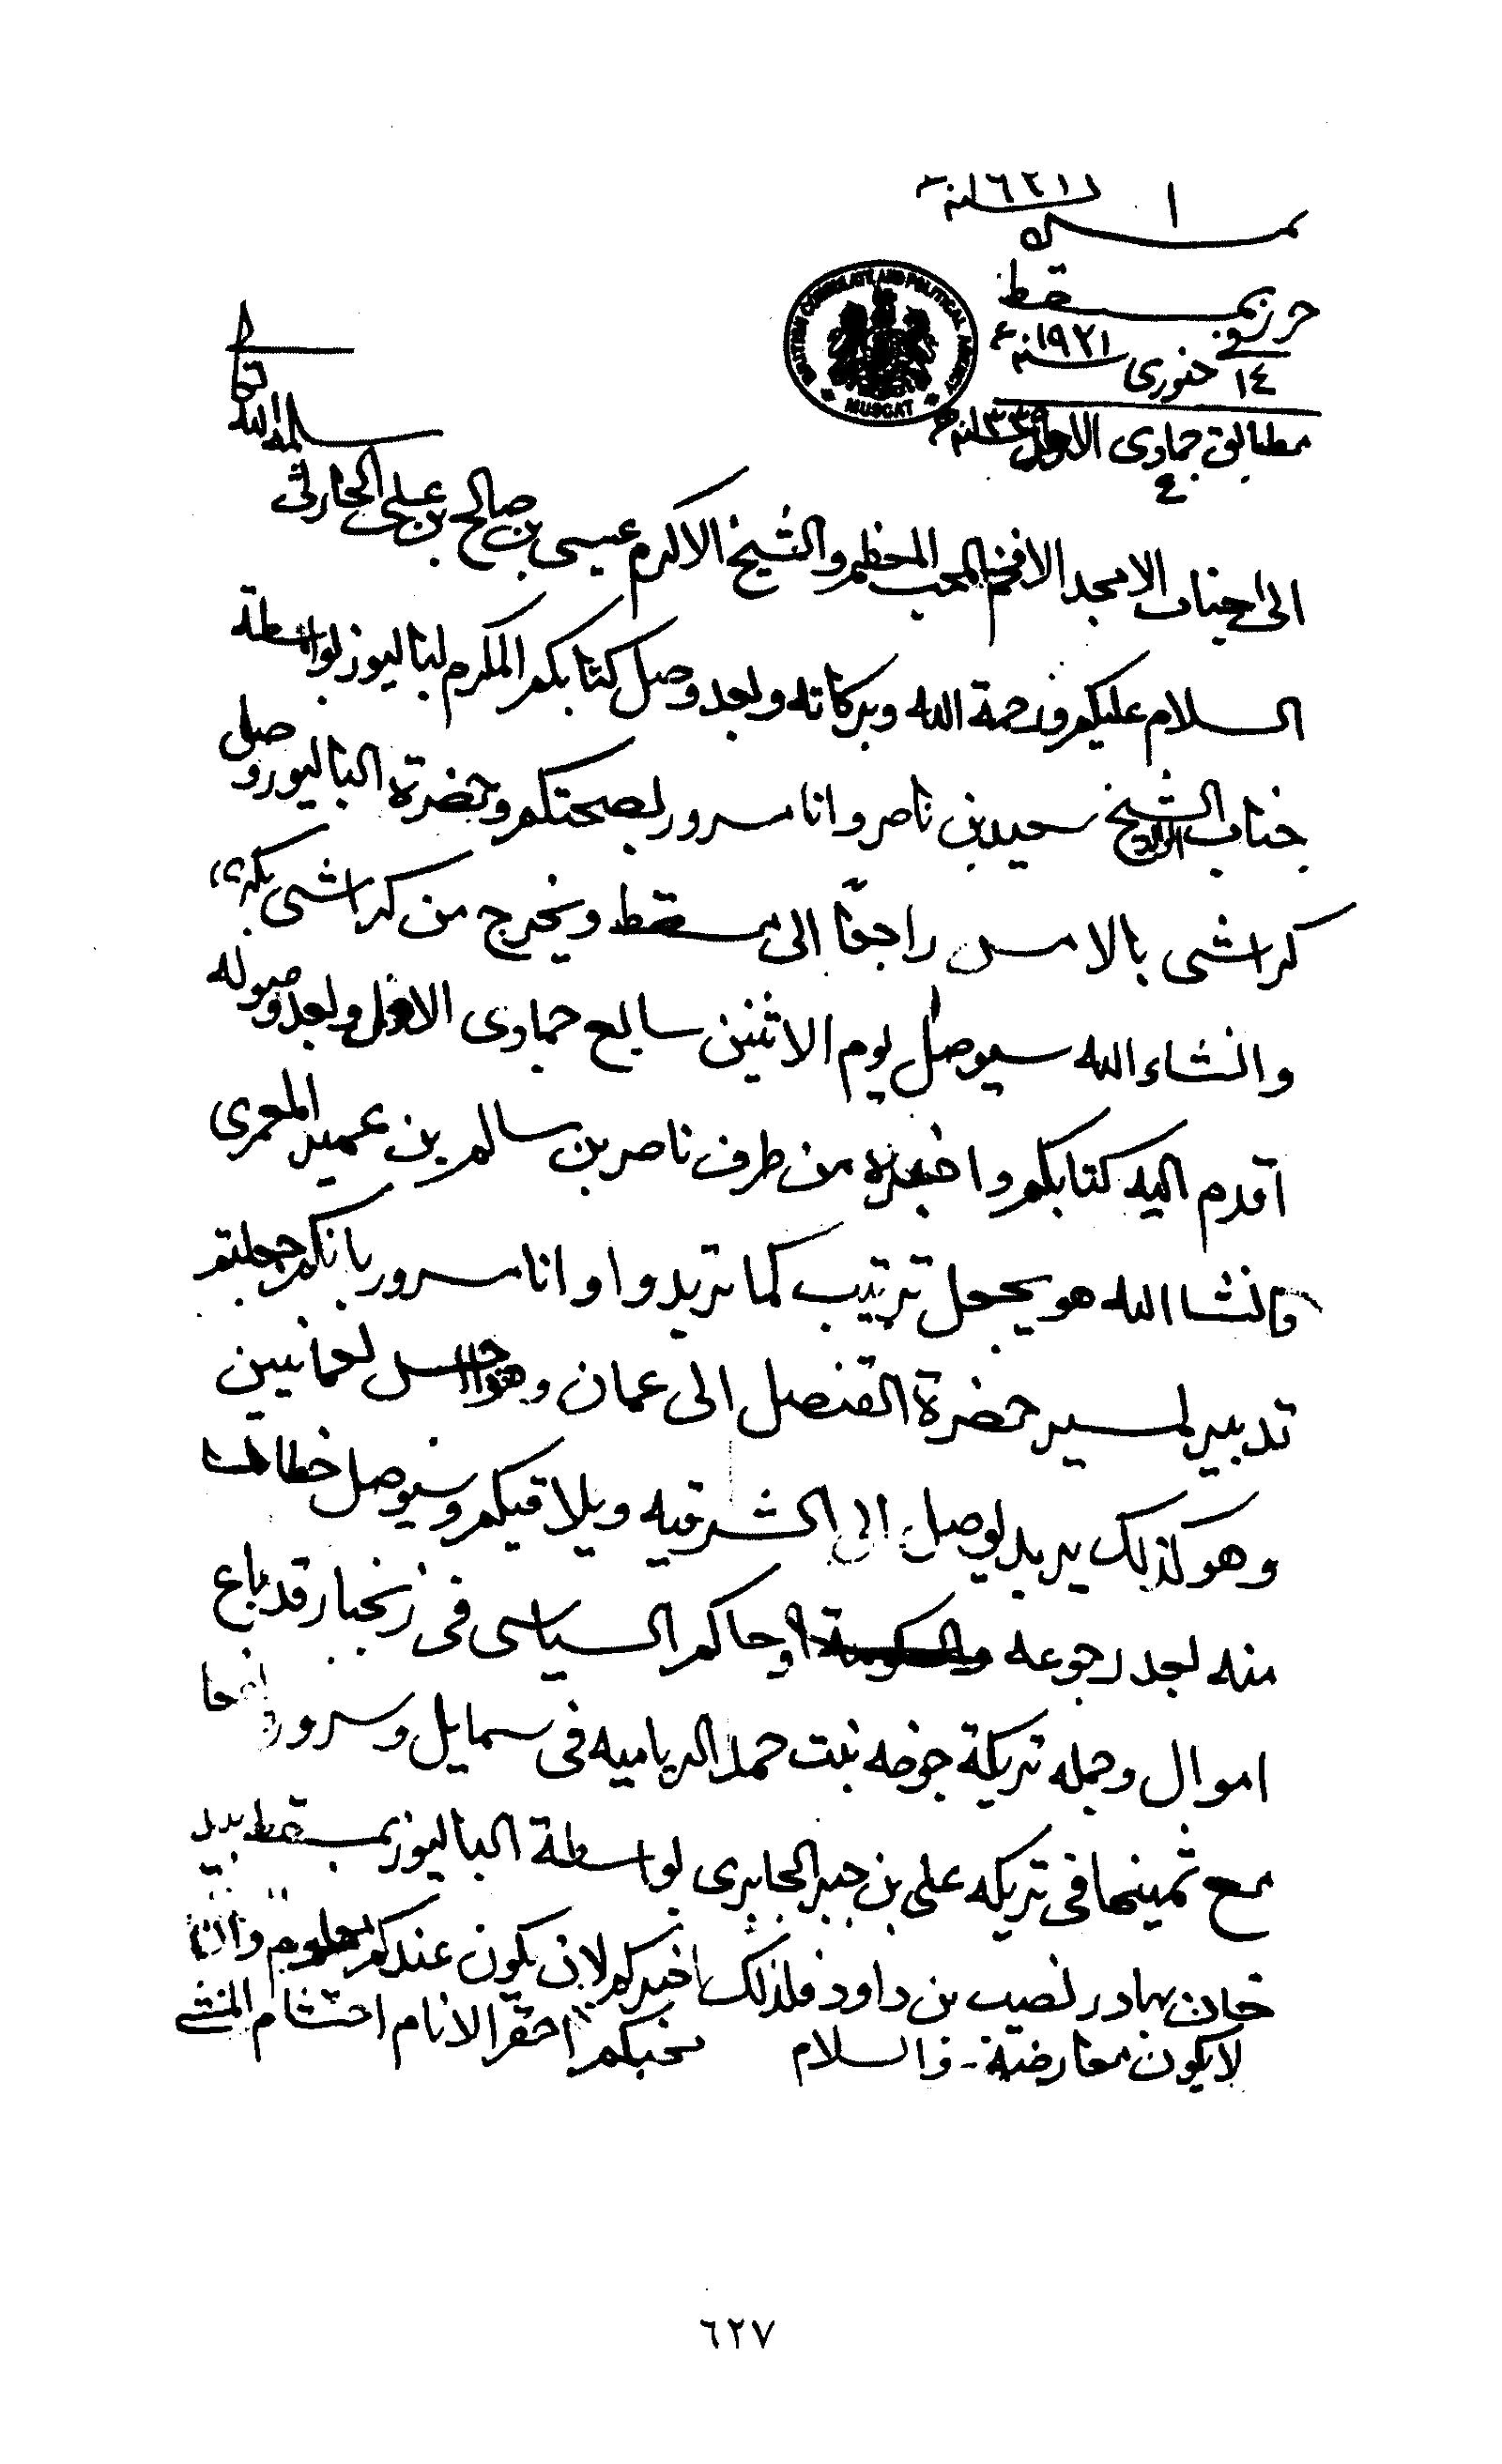 نمـــره ١ سنه ١٩٢١
حرر بمسقط
١٤ جنوری سنه ١٩٢١ء
مطابق جمادی الاول سنه ١٣٣٩ ھ
٤
BRITISH CONSULATE AND POLITICAL AGENCY
MUSCAT
سلمه الله تعا
الى جناب الامجد الافخم المحب المعظم والشيخ الاكرم عيسى بن صالح بن علي الحارثي
السلام عليكم ورحمة الله وبركاته وبعد وصل كتابكم المكرم لباليوز بواسطة
جناب الشيخ سعيد بن ناصر وانا مسرور لصحتكم وحضرة الباليوز وصل
كراشى بالامس راجعًا الى مسقط ويخرج من كراشى بكره
وانشاء الله سيوصل يوم الاثنين سابع جمادى الاول وبعد وصوله
أقدم اليه كتابكم واخبره من طرف ناصر بن سالم بن عمير المعمرى
وانشا الله هو يجعل ترتيب كما تريدوا وانا مسرور بانكم جعلتم
تدبير لمسير حضرة القنصل الى عمان وهو لعمانيين
وهو كذلك يريد يوصل الى الشرقيه ويلاقيكم وسيوصل خطاب
منه بعد رجوعه وحاكم السياسى فى زنجبار قد باع
اموال وجمله تريكة جوخه بنت حمد الرياميه فى سمايل وسرور
مع ثمينها فى تريكه على بن جبر الجابرى بواسطة الباليوز بمسقط بيد
خان بهادر نصيب بن داود فلذلك اخبركم لان يكون عندكم معلوم
لا يكون معارضة - والسلام محبكم احقر الانام احتشام المنشي
٦٢٧